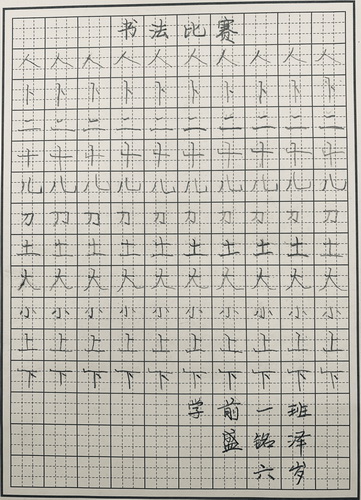 书法比赛
人人人人人人人人人人
卜卜卜卜卜卜卜卜卜卜
二二二二二二二二二二
十十十十十十十十十十
儿儿儿儿儿儿儿儿儿儿
刀刀刀刀刀刀刀刀刀刀
土土土土土土土土土土
大大大大大大大大大大
小小小小小小小小小小
上上上上上上上上上上
下下下下下下下下下下
学前一班
盛铭泽
六岁